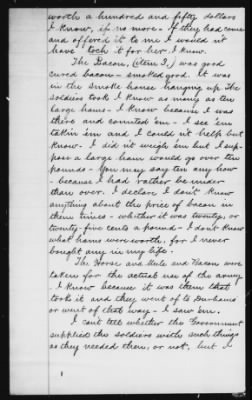 worth a hundred and fifty dollars
I know, if no more - If they had come
and offered it to me I would n't
have took it for her I know.
The Bacon, (item 3,) was good
cured bacon - smoked good. It was
in the smoke house hanging up. The
soldiers took I know as many as ten
large hams - I know because I was
there and counted 'em - I see 'em
takin 'em and I could n't help but
know - I did n't weigh 'em but I sup-
pose a large ham would go over ten
pounds - You may say ten any how
- because I had rather be under
than over. I declare I don't know
anything about the price of bacon in
them times - whether it was twenty, or
twenty-five cents a pound - I don't know
what hams were worth, for I never
bought any in my life.
The Horse and Mule and Bacon were
taken for the actual use of the army
- I know because it was them that
took it and they went of to
or went of that way - I saw 'em.
I can't tell whether the Government
supplied the soldiers with such things
as they needed them, or not, but I